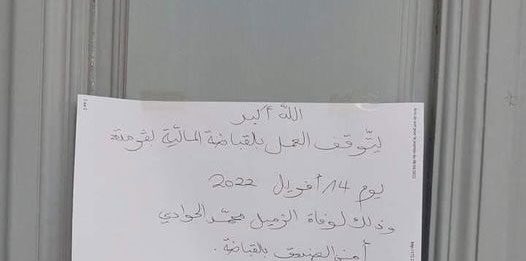 الله أكبر
يتوقف العمل بالقباضة المالية لقرمدة
يوم 14 أفريل 2022
وذلك لوفاة الزميل محمد الحوادي
أمين الصندوق بالقباضة.